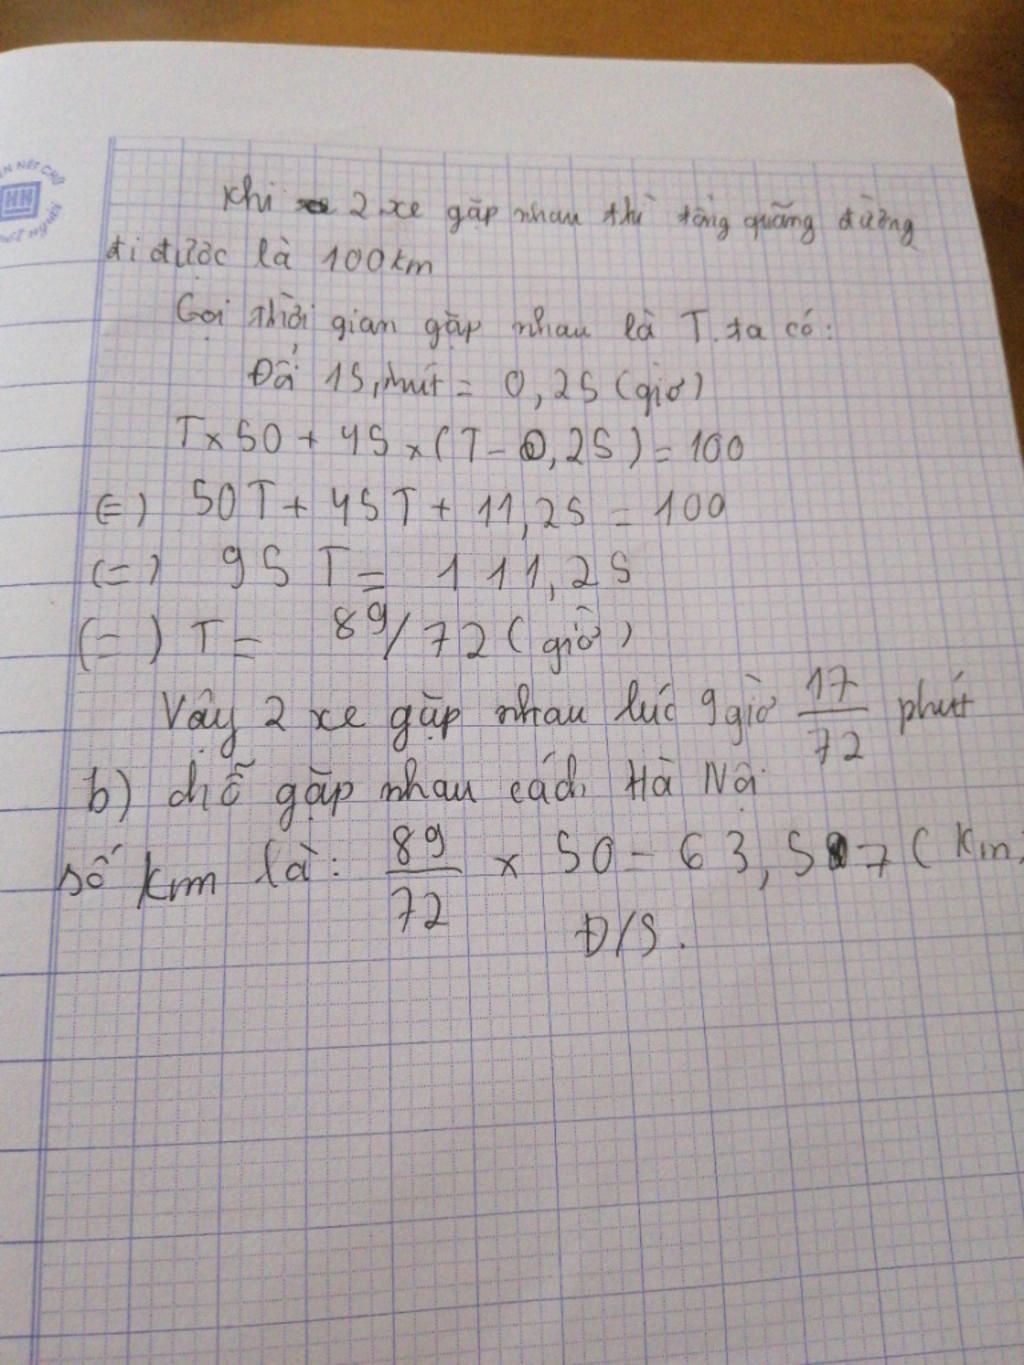 Khi 2 xe gặp nhau thì tổng quãng đường
đi được là 100km
Gọi thời gian gặp nhau là T. ta có:
Đổi 15 phút = 0,25 (giờ)
T x 50 + 45 x (T - 0,25) = 100
(=) 50T + 45T + 11,25 = 100
(=) 95T = 111,25
(=) T = 89/72 (giờ)
Vậy 2 xe gặp nhau lúc 9 giờ 17/72 phút
b) chỗ gặp nhau cách Hà Nội
số km là: 89/72 x 50 = 63,507 (km)
Đ/S.
HH